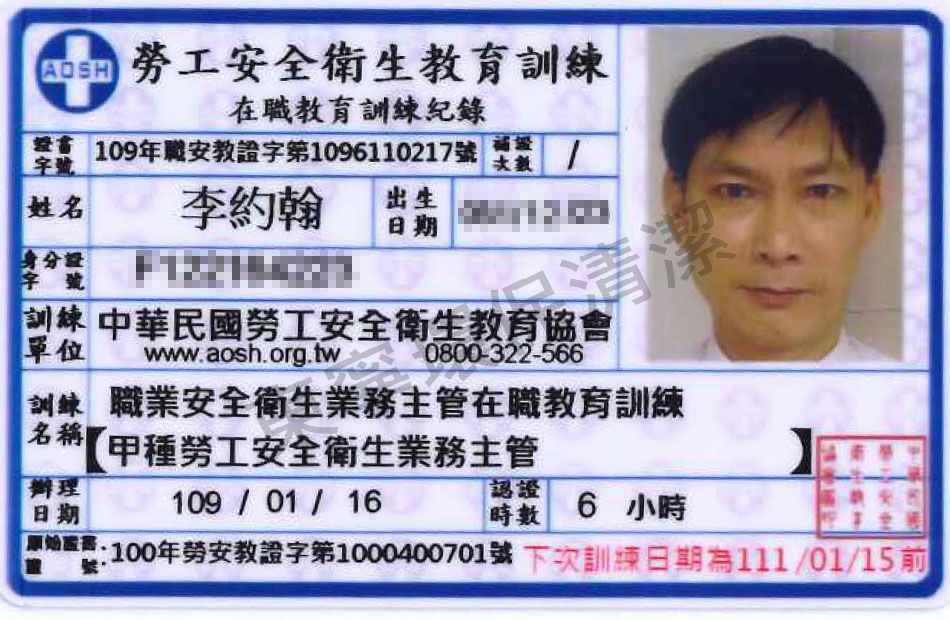 AOSH
勞工安全衛生教育訓練
在職教育訓練紀錄
證書字號 109年職安教證字第1096110217號 補證次數 /
姓名 李約翰 出生日期
身分證字號
訓練單位 中華民國勞工安全衛生教育協會
www.aosh.org.tw 0800-322-566
訓練名稱 職業安全衛生業務主管在職教育訓練
【甲種勞工安全衛生業務主管】
辦理日期 109 / 01 / 16 認證時數 6 小時
原始證書證號:100年勞安教證字第1000400701號 下次訓練日期為111/01/15前
東寧環保清潔